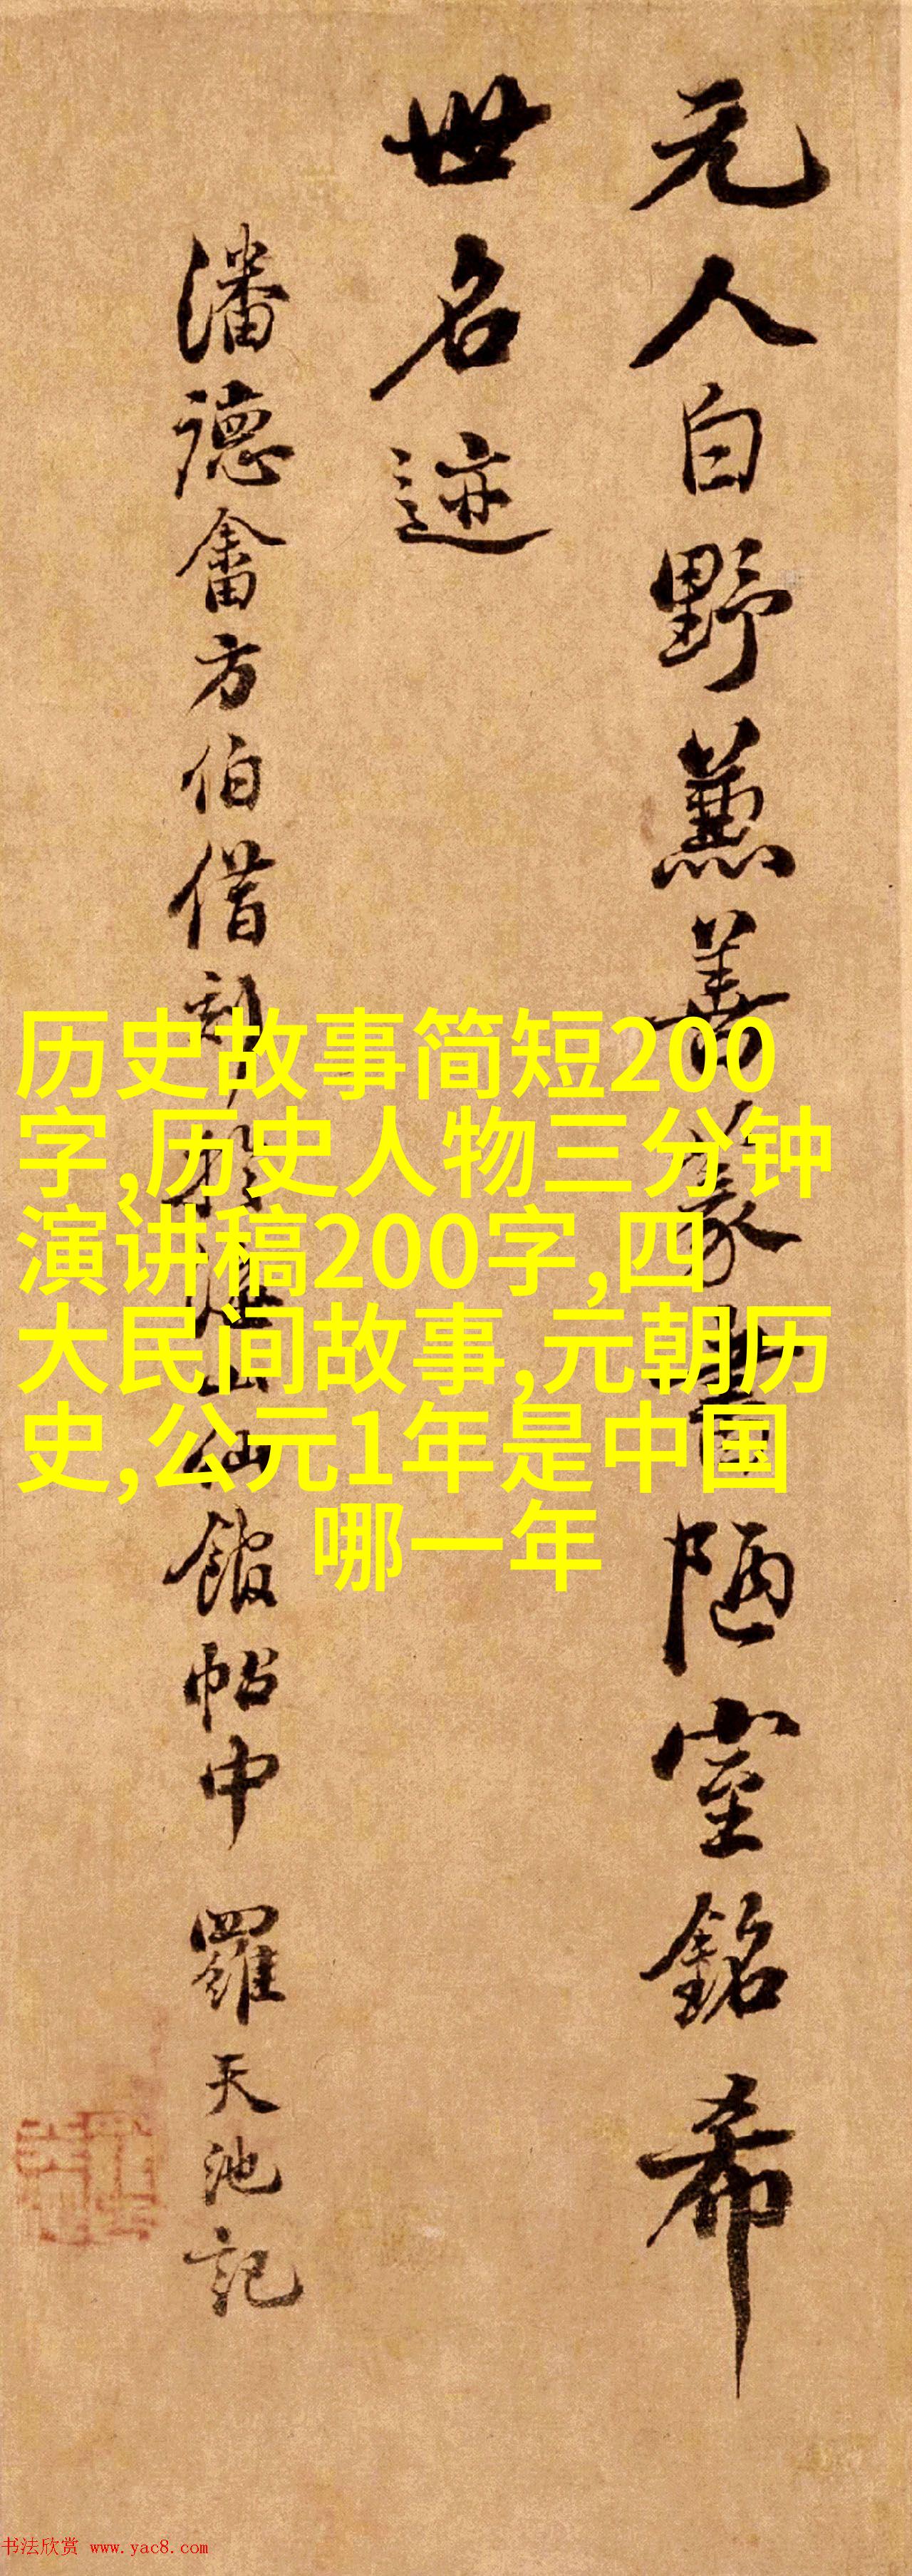 元人白野兼善篆書陋室銘希
世名迹
潘德畬方伯借刻於海山仙館帖中 羅天池記
历史故事简短200
字,历史人物三分钟
演讲稿200字,四
大民间故事,元朝历
史,公元1年是中国
哪一年
书法欣赏 www.yac8.com